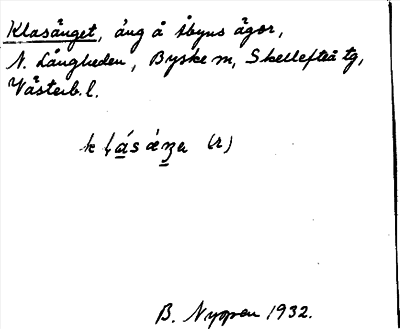 Klasänget, äng å Åbyns ägor,
N. Långheden, Byske m, Skellefteå tg,
Västerb. l.
B. Nygren 1932.